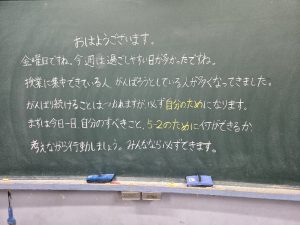 おはようございます。
金曜日ですね。今週は過ごしやすい日が多かったですね。
授業に集中できている人、がんばろうとしている人が多くなってきました。
がんばり続けることはつかれますが、必ず自分のためになります。
まずは今日一日、自分のすべきこと、5-2のために何ができるか、
考えながら行動しましょう。みんななら必ずできます。